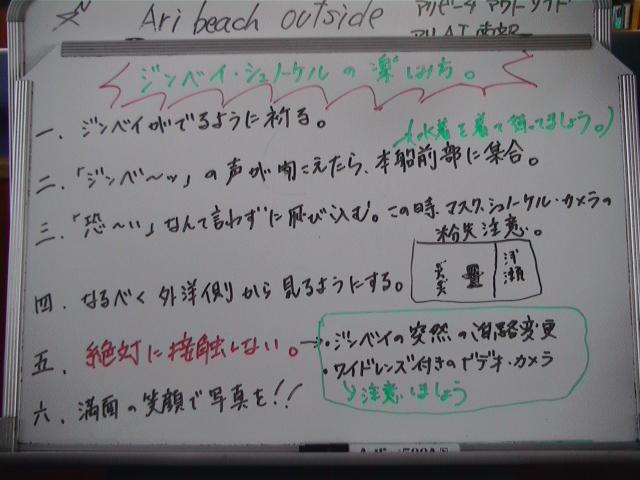 Ari beach outside
アリビーチ アウトサイド
アリATOLL南部
ジンベイ・シュノーケルの楽しみ方。
一．ジンベイがでるように祈る。
(水着を着て待ってましょう。)
二．「ジンベ〜ッ」の声が聞こえたら、本船前部に集合。
三．「恐〜い」なんて言わずに飛び込む。この時、マスク、シュノーケル・カメラの
紛失注意。
四．なるべく外洋側から見るようにする。
浅瀬
五．絶対に接触しない。→
・ジンベイの突然の進路変更
・ワイドレンズ付きのビデオ・カメラ
注意しましょう
六．満面の笑顔で写真を！！